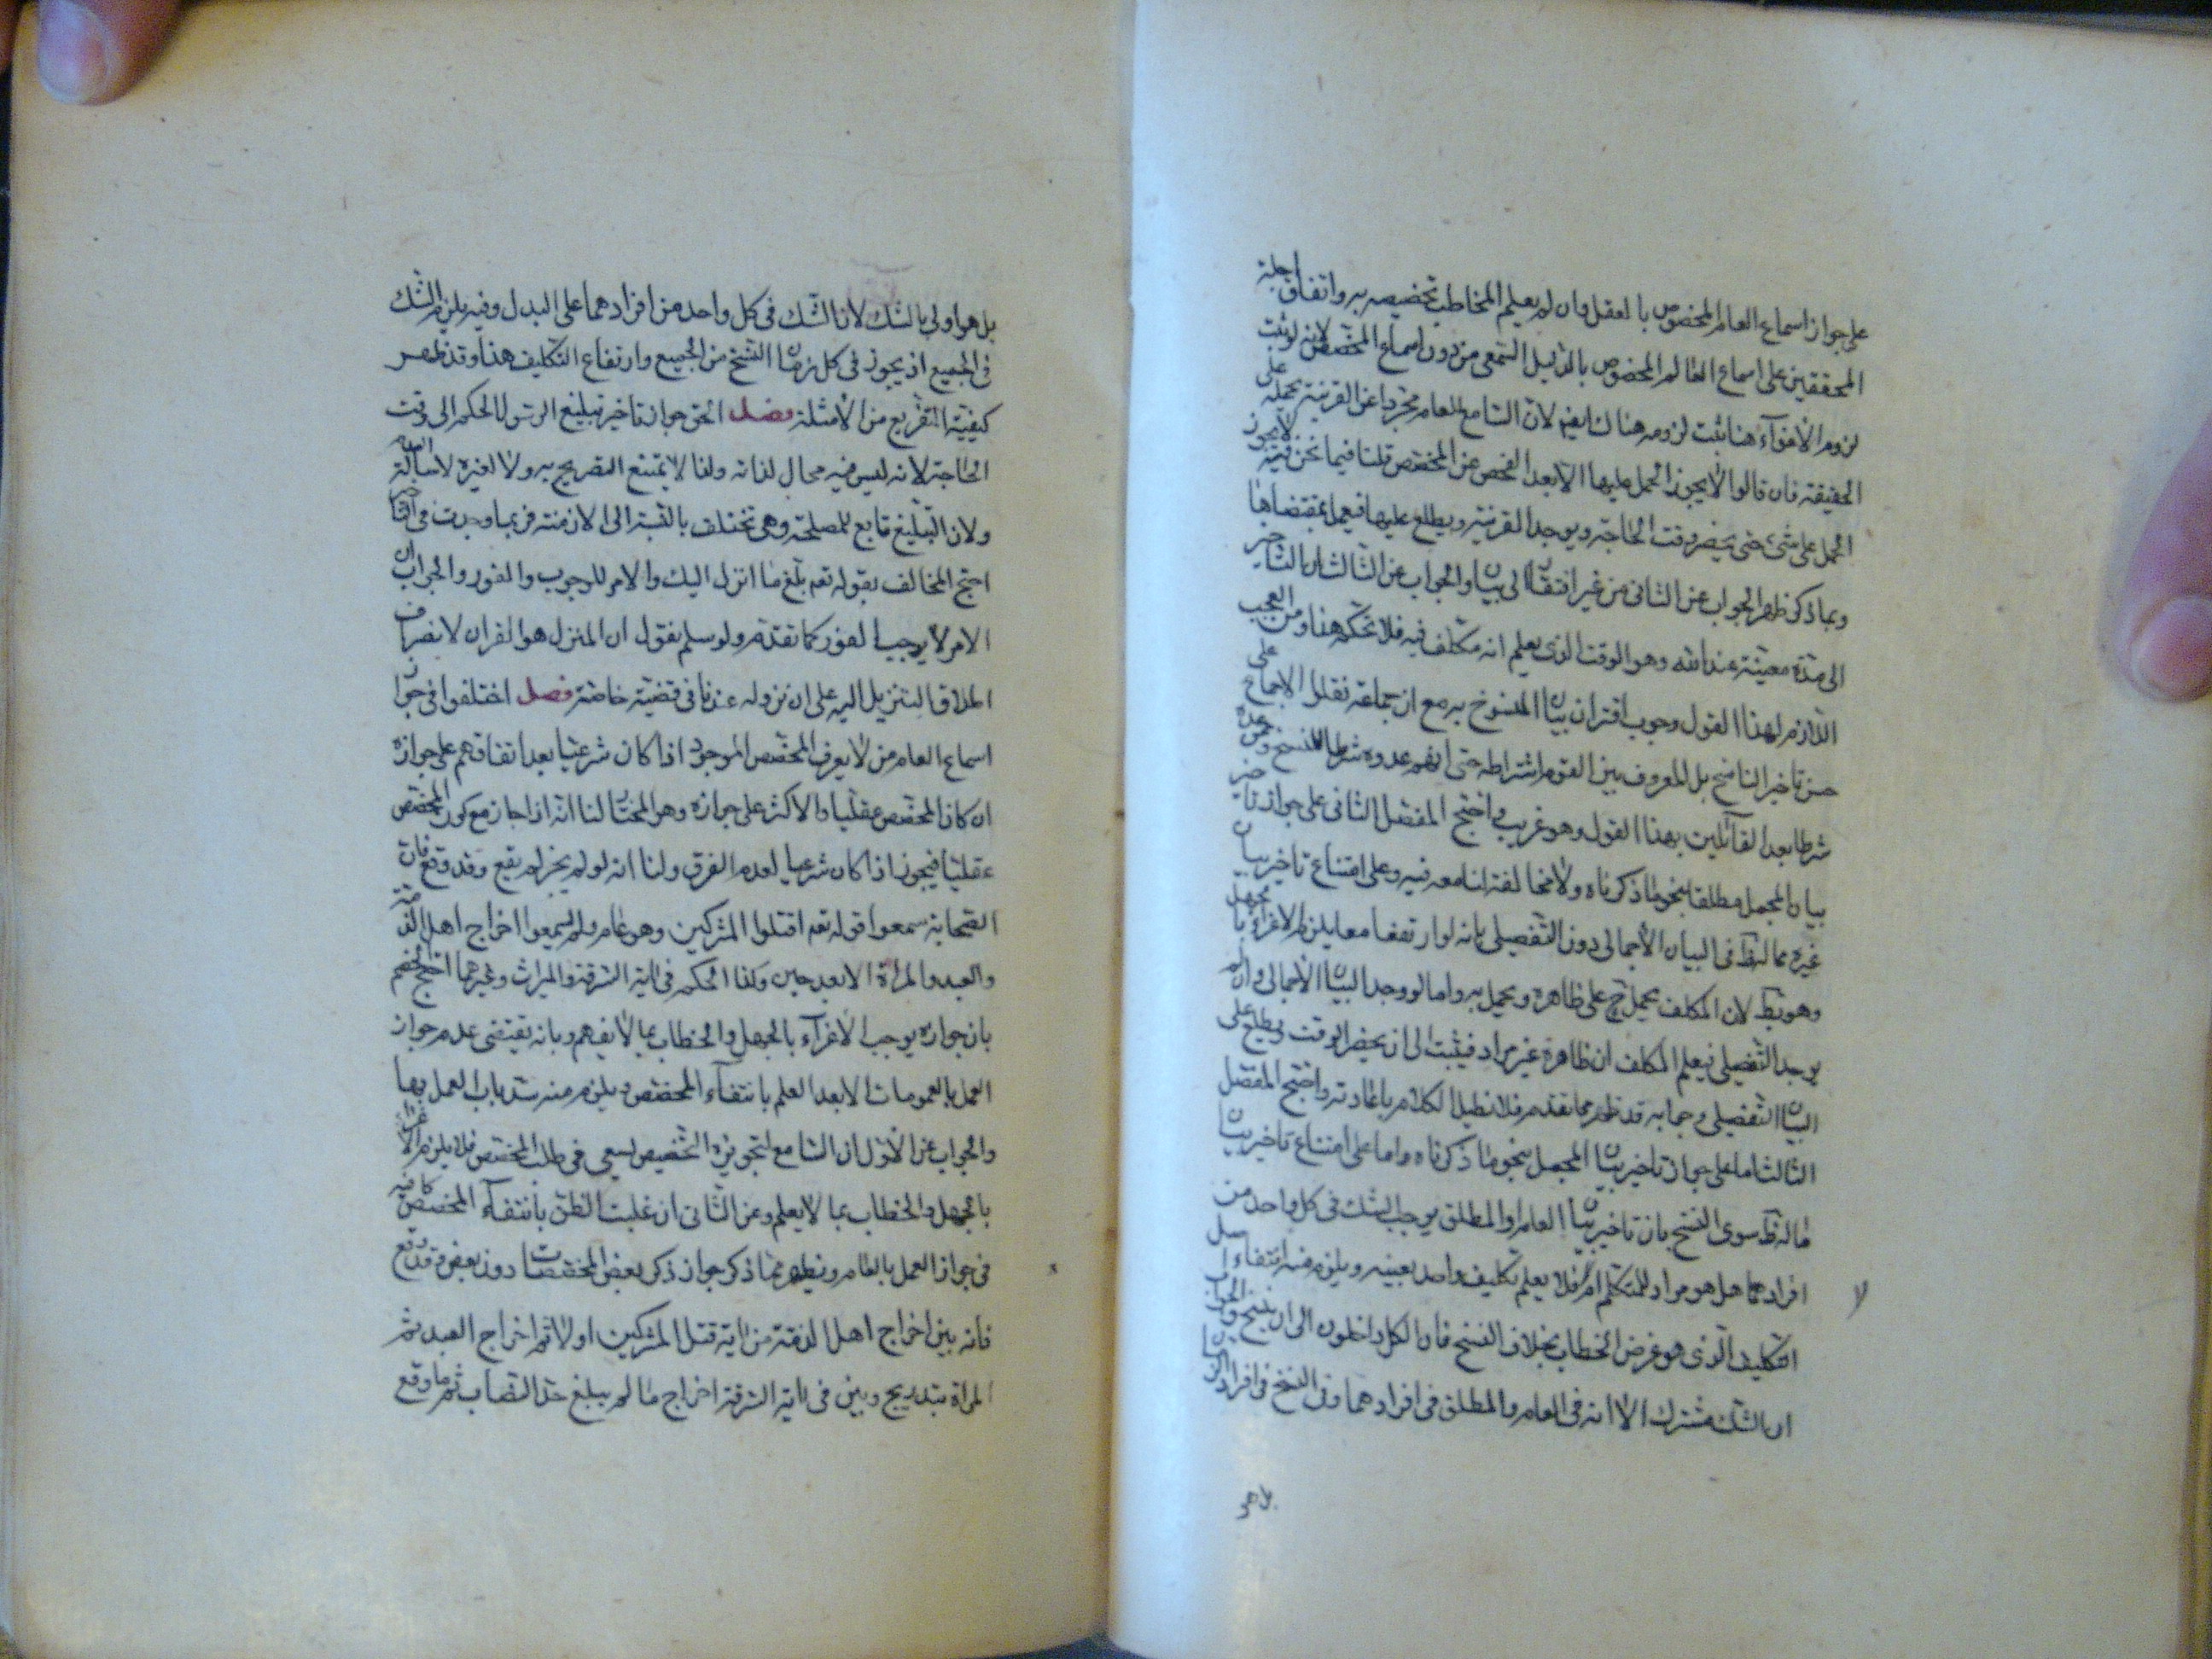 على جواز اسماع العام المخصوص بالعقل وان لم يعلم المخاطب تخصيصه به واتفاق اجلة
المحققين على اسماع العام المخصوص بالدليل السمعى من دون اسماع المخصص لانه لو ثبت
لزوم الاغرآء هنا ثبت لزومه هناك ايضم لان السامع للعام مجردا عن القرينة يحمله على
الحقيقة فان قالوا لا يجوز الحمل عليها الا بعد الفحص عن المخصص قلنا فيما نحن فيه لا يجوز
الحمل على شئ حتى يحضر وقت الحاجة ويوجد القرينة ويطلع عليها فيعمل بمقتضاها
وبما ذكر ظهر الجواب عن الثانى من غير افتقار الى بيان والجواب عن الثالث ان التاخير
الى مدة معينة عند الله وهو الوقت الذى يعلم انه مكلف فيه فلا تحكم هذا ومن العجب
اللازم لهذا القول وجوب اقتران بيان المنسوخ به مع ان جماعة نقلوا الاجماع على
حسن تاخير الناسخ بل المعروف بين القوم اشتراطه حتى انهم عدوه شرطا للنسخ وممن عده
شرطا بعد القآئلين بهذا القول وهو غريب واحتج المفصل الثانى على جواز تاخير
بيان المجمل مطلقا بنحو ما ذكرناه ولا مخالفة لنا معه فيه وعلى امتناع تاخير بيان
غيره مما له ظ فى البيان الاجمالى دون التفصيلى بانه لو ارتفعا معا يلزم الاغرآء بالجهل
وهو بط لان المكلف يحمل ح على ظاهره ويعمل به واما لو وجد البيان الاجمالى وان لم
يوجد التفصيلى فيعلم المكلف ان ظاهره غير مراد فيثبت الى ان يحضر الوقت ويطلع على
البيان التفصيلى وجوابه قد ظهر مما تقدم فلا نطيل الكلام باعادته واحتج المفصل
الثالث اما على جواز تاخير بيان المجمل بنحو ما ذكرناه واما على امتناع تاخير بيان
ماله ظ سوى النسخ بان تاخير بيان العام او المطلق يوجب الشك فى كل واحد من
افرادهما هل هو مراد للمتكلم ام لا فلا يعلم تكليف واحد بعينه ويلزم منه انتفاء
التكليف الذى هو غرض الخطاب بخلاف النسخ فان الكل داخلون الى ان ينسخ والجواب
ان الشك مشترك الا انه فى العام والمطلق فى افرادهما وفى النسخ فى افراد الزمان
لا
بل هو
بل هو اولى بالشك لان الشك فى كل واحد من افرادهما على البدل وفيه يلزم الشك
فى الجميع اذ يجوز فى كل زمان النسخ من الجميع وارتفاع التكليف هذا وقد ظهر
كيفية التفريع من الامثلة فصل الحق جواز تاخير تبليغ الرسول الحكم الى وقت
الحاجة لانه ليس فيه محال لذاته ولذا لا يمتنع التصريح به ولا لغيره لاصالة العدم
ولان التبليغ تابع للمصلحة وهى تختلف بالنسبة الى الازمنة فربما وجدت فى التاخير
احتج المخالف بقوله تعم بلغ ما انزل اليك والامر للوجوب والفور والجواب ان
الامر لا يوجب الفور كما تقدم ولو سلم نقول ان المنزل هو القران لانصراف
اطلاق التنزيل اليه على ان نزوله عندنا فى قضية خاصة فصل اختلفوا فى جواز
اسماع العام من لا يعرف المخصص الموجود اذا كان شرعيا بعد اتفاقهم على جوازه
ان كان المخصص عقليا والاكثر على جوازه وهو المختار لنا انه اذا جاز مع كون المخصص
عقليا فيجوز اذا كان شرعيا لعدم الفرق ولنا انه لو لم يجز لم يقع وقد وقع فان
الصحابة سمعوا قوله تعم اقتلوا المشركين وهو عام ولم يسمعوا اخراج اهل الذمة
والعبد والمراة الا بعد حين وكذا الحكم فى اية السرقة والميراث وغيرهما احتج الخصم
بان جوازه يوجب الاغرآء بالجهل والخطاب بما لا يفهم وبانه يقتضى عدم جواز
العمل بالعمومات الا بعد العلم بانتفآء المخصص ويلزم منه سد باب العمل بها
والجواب عن الاول ان السامع لتجويزه التخصيص يسعى فى طلب المخصص فلا يلزم الاغرآء
بالجهل والخطاب بما لا يعلم وعن الثانى ان غلبة الظن بانتفآء المخصص كافية
فى جواز العمل بالعام ويظهر مما ذكر جواز ذكر بعض المخصصات دون بعض وقد وقع
فانه بين اخراج اهل الذمة من اية قتل المشركين اولا ثم اخراج العبد ثم
المراة بتدريج وبين فى اية السرقة اخراج ما لم يبلغ حد النصاب ثم ما وقع